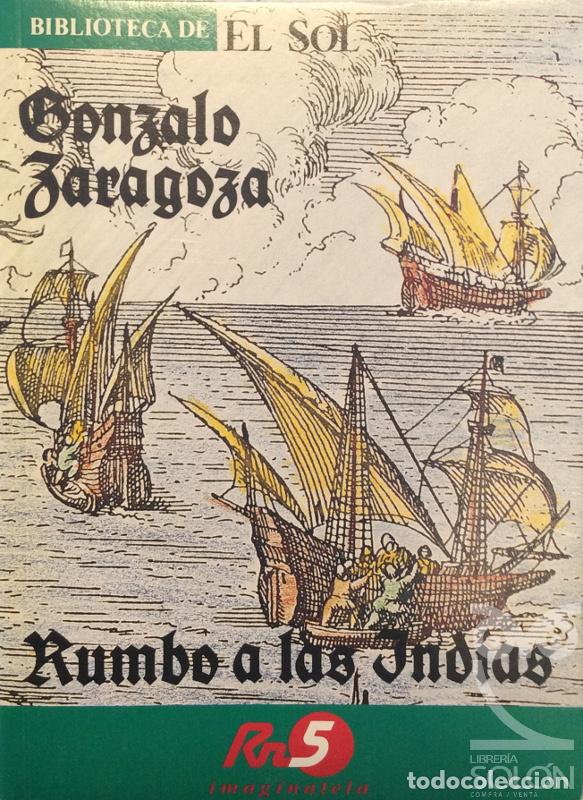 BIBLIOTECA DE EL SOL
Gonzalo
Zaragoza
Rumbo a las Indias
Rn5
imaginatela
LIBRERÍA
SOLÓN
COMPRA / VENTA
todocoleccion